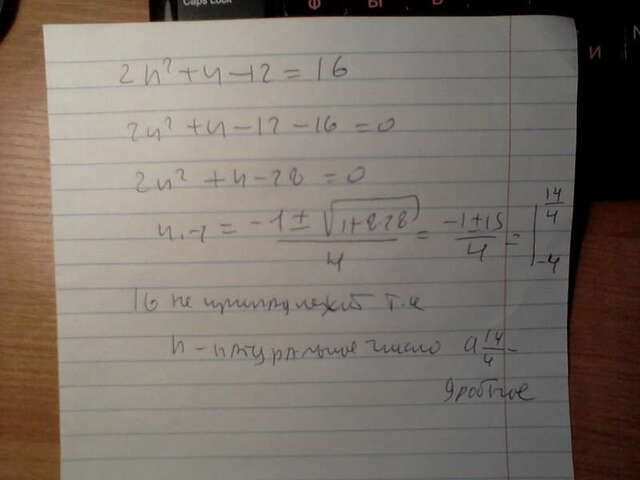 Caps Lock
Ф
Ы
В
И
2n² + n - 12 = 16
2n² + n - 12 - 16 = 0
2n² + n - 28 = 0
n₁,₂ = -1 ± √1+8·28 / 4 = -1±15 / 4 = 14/4 -4
16 не принадлежит т.к
n - натуральное число а 14/4 -
дробное